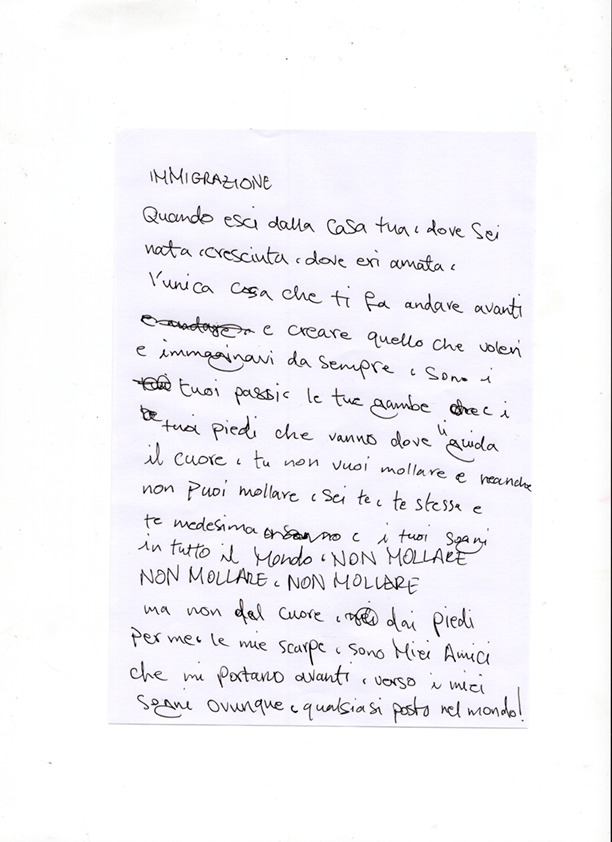 IMMIGRAZIONE
Quando esci dalla casa tua, dove sei
nata, cresciuta, dove eri amata,
l'unica cosa che ti fa andare avanti
e andare e creare quello che volevi
e immaginavi da sempre, sono i
tuoi passi, le tue gambe, i
tuoi piedi che vanno dove li guida
il cuore, tu non vuoi mollare e neanche
non puoi mollare, sei te, te stessa e
te medesima e i tuoi sogni
in tutto il Mondo, NON MOLLARE
NON MOLLARE, NON MOLLARE
ma non dal cuore, dai piedi
Per me, le mie scarpe, sono Miei Amici
che mi portano avanti, verso i miei
sogni ovunque, qualsiasi posto nel mondo!